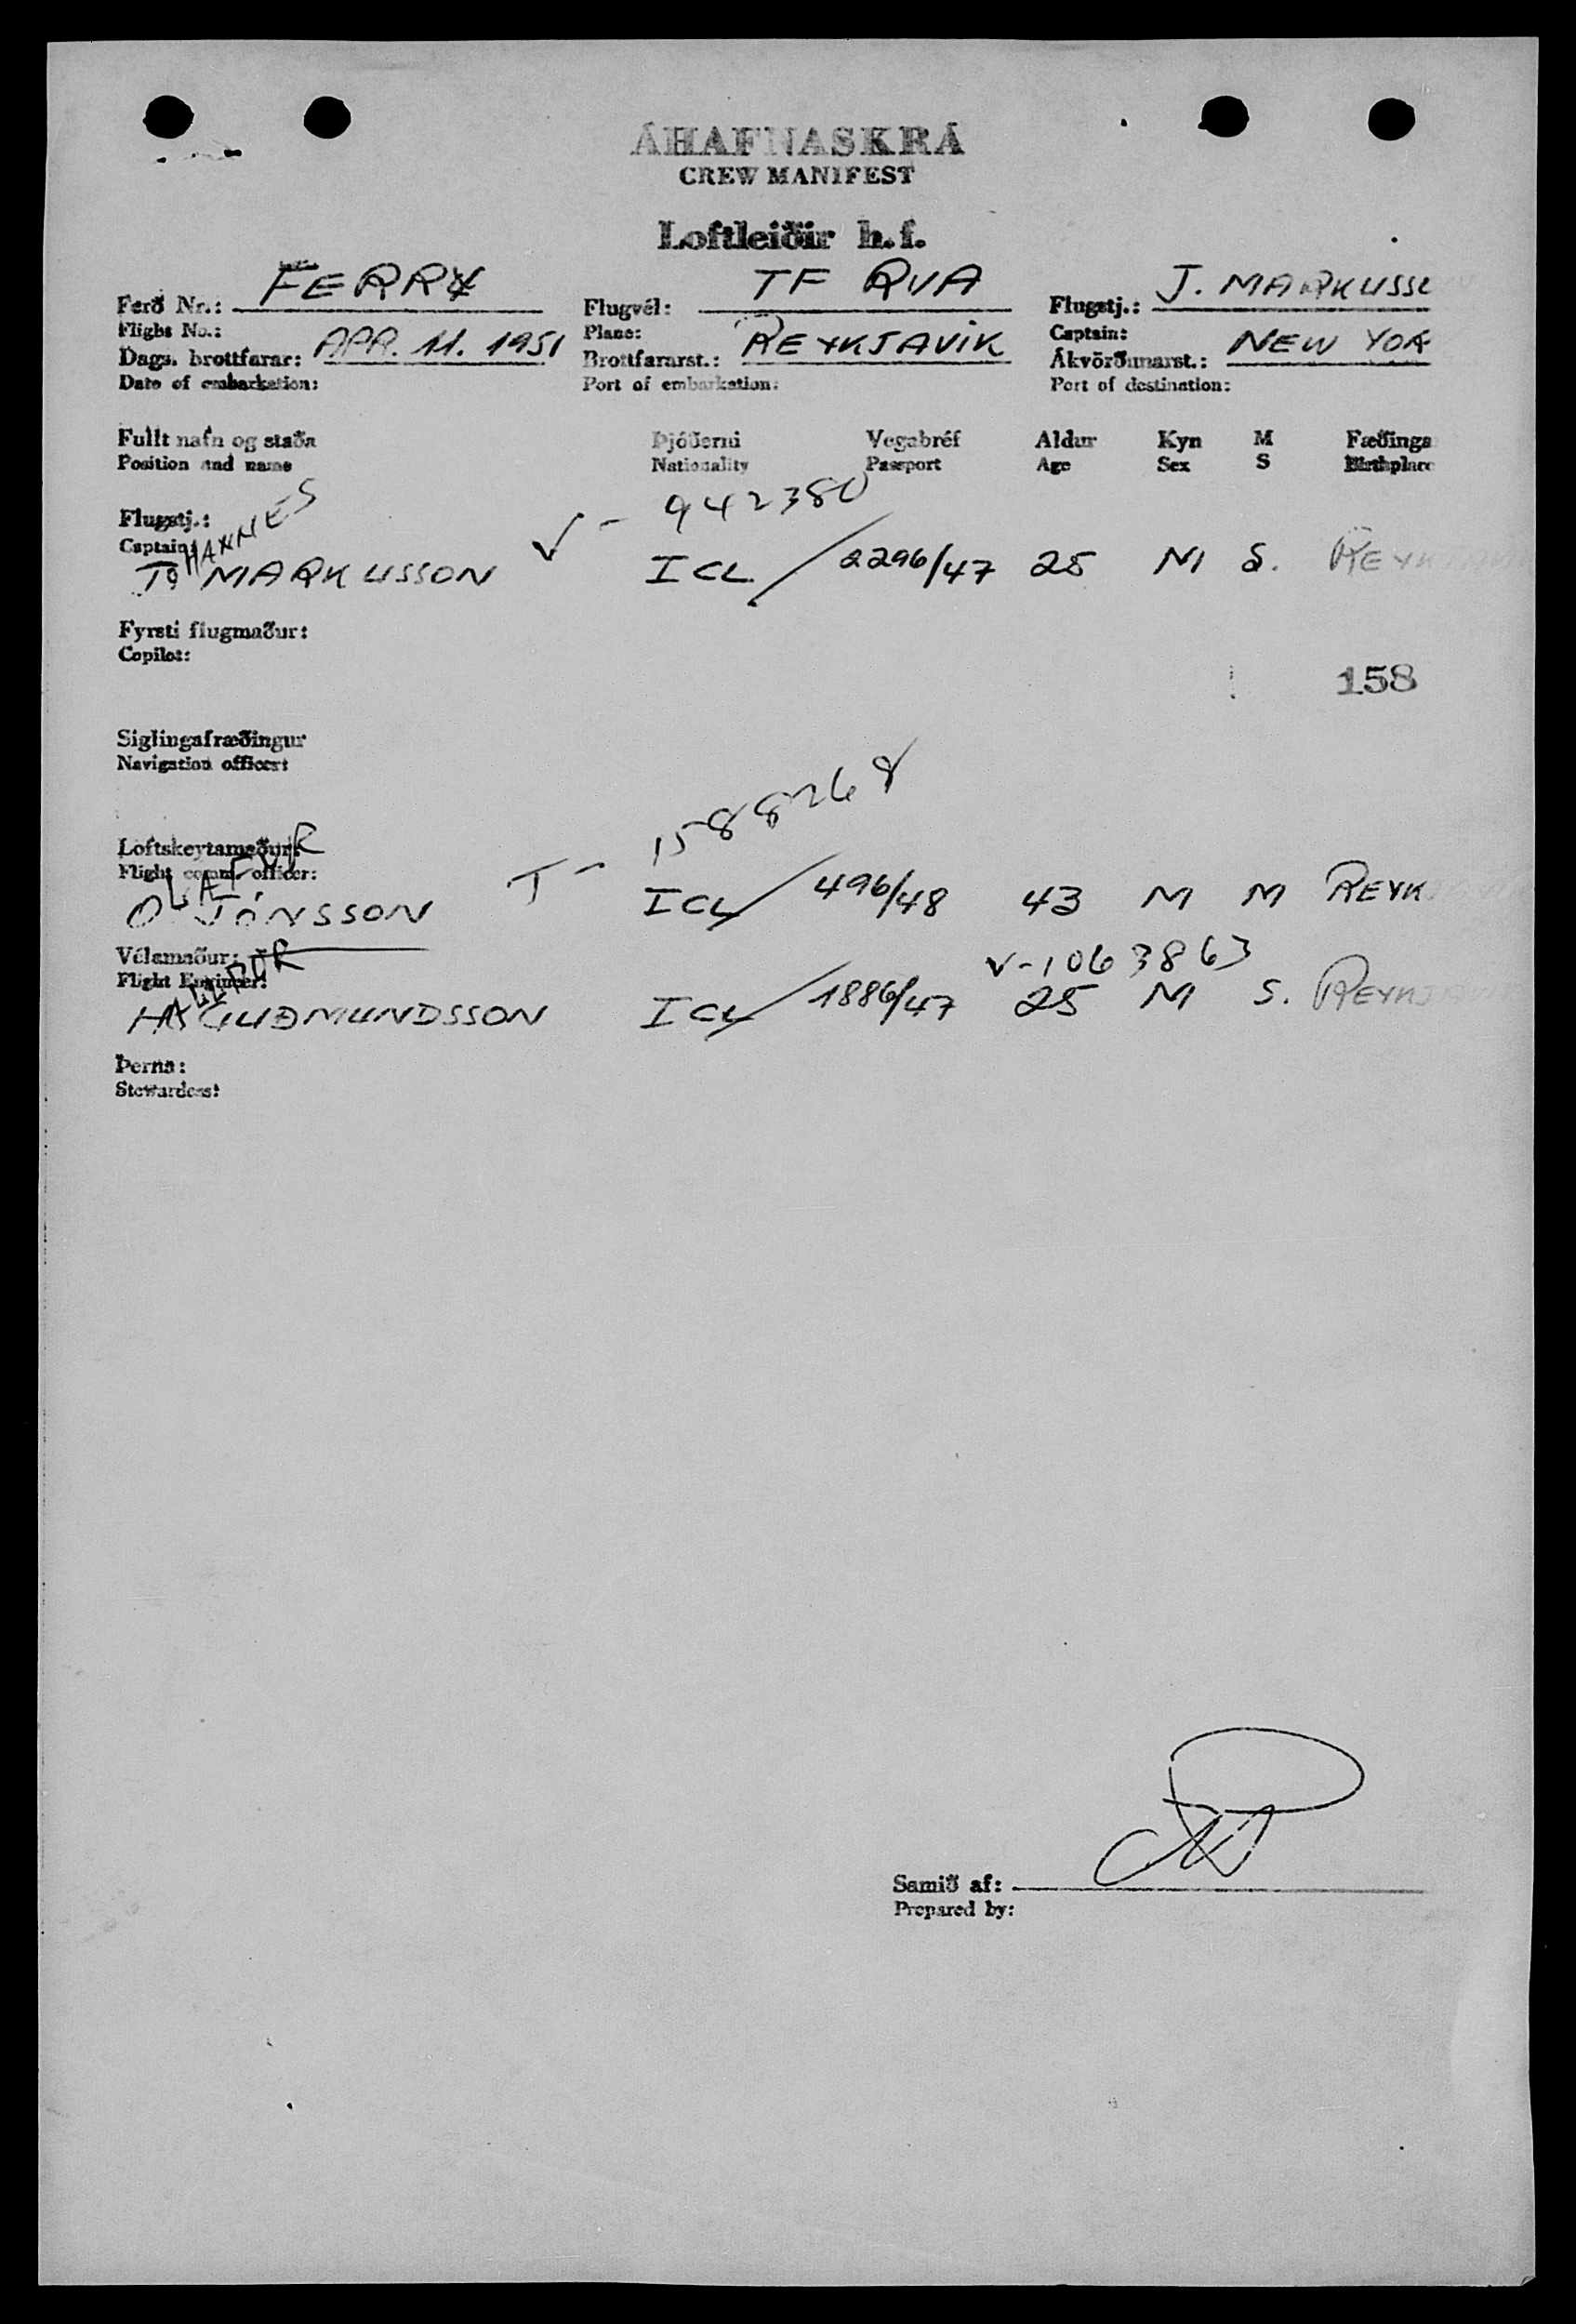 ÁHAFNASKRÁ
CREW MANIFEST
Loftleiðir h.f.
Ferð Nr.: FERRY Flugvél: TF RVA Flugstj.: J. MARKUSSO
Flight No.: Plane: Captain:
Dags. brottfarar: APR. 11. 1951 Brottfararst.: REYKJAVIK Ákvörðunarst.: NEW YOR
Date of embarkation: Port of embarkation: Port of destination:
Fullt nafn og staða Þjóðerni Vegabréf Aldur Kyn M Fæðinga
Position and name Nationality Passport Age Sex S Birthplace
Flugstj.: HANNES V - 942380
Captain:
MARKUSSON ICL 2296/47 25 M S. REYKJAVIK
Fyrsti flugmaður:
Copilot:
158
Siglingafræðingur
Navigation officer:
1588268
Loftskeytamaður:
Flight comm. officer: OLAFUR T -
O. JÓNSSON ICL 496/48 43 M M REYK
Vélamaður: V-1063863
Flight Engineer:
GUÐMUNDSSON ICL 1886/47 25 M S. REYKJAV
Þerna:
Stewardess:
Samið af:
Prepared by: